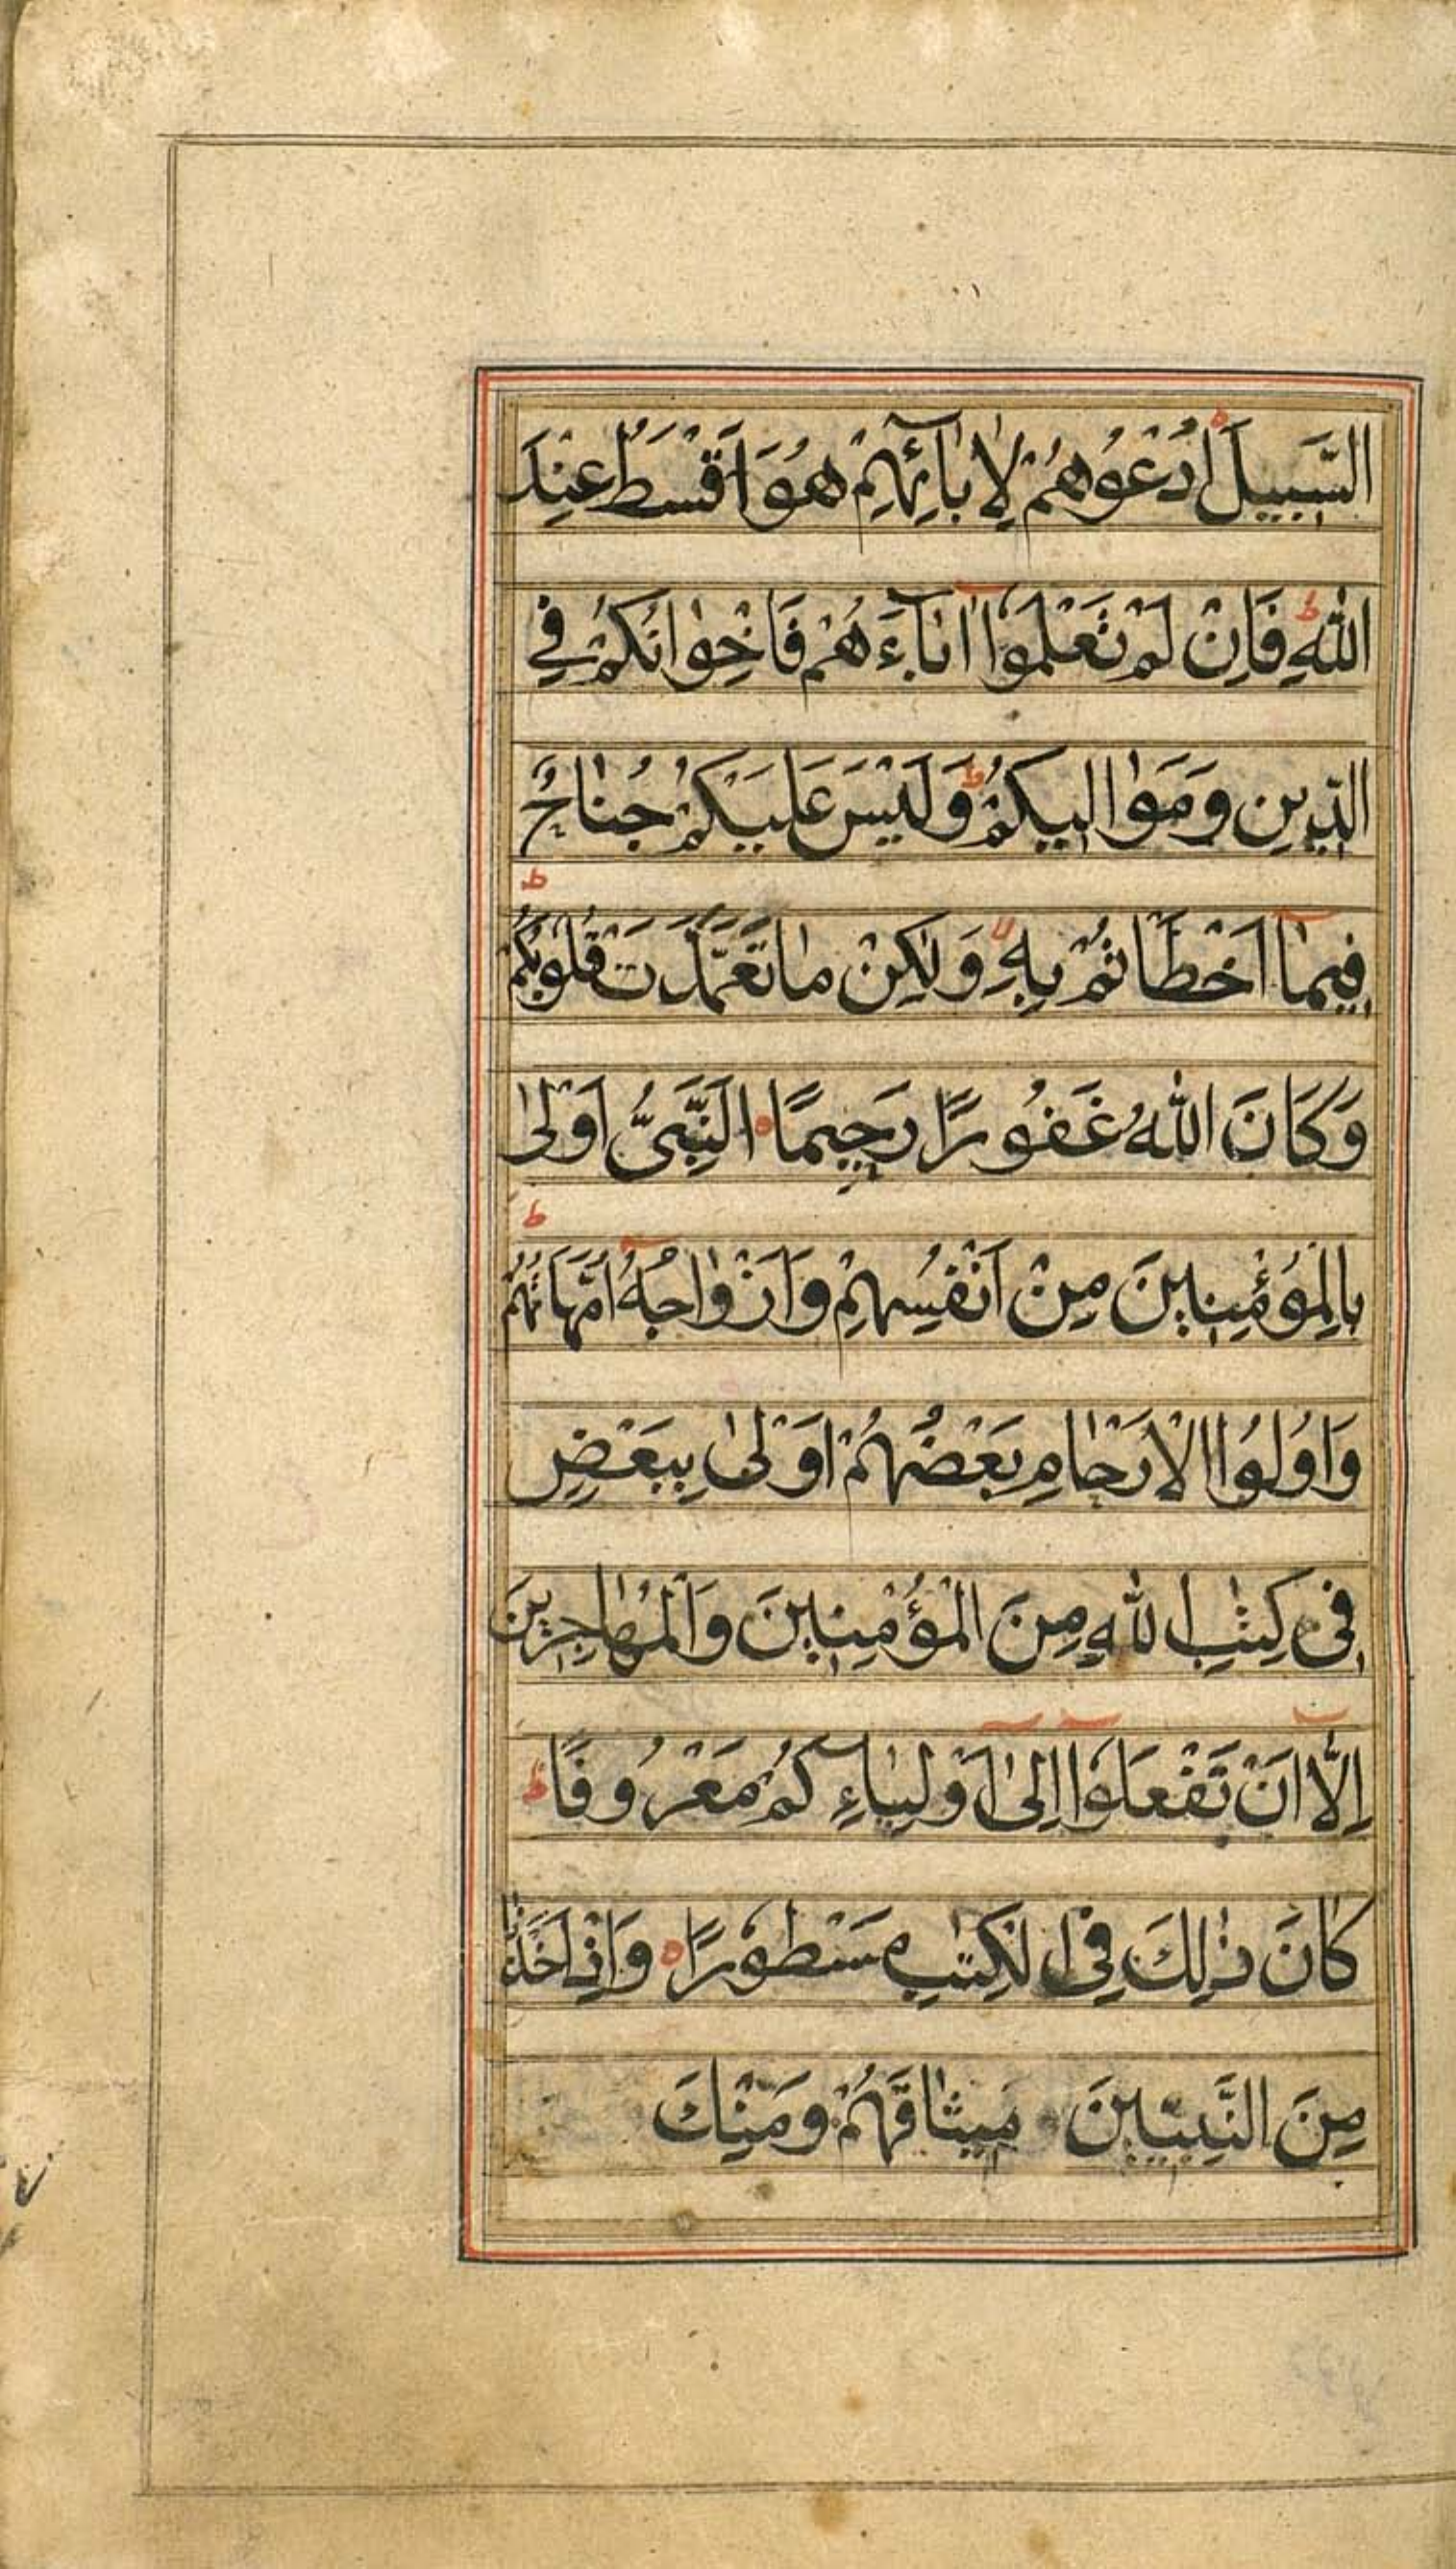 السَّبِيلَ اُدْعُوهُمْ لِاٰبَآئِهِمْ هُوَ اَقْسَطُ عِنْدَ
اللّٰهِ ط فَاِنْ لَمْ تَعْلَمُوٓا اٰبَآءَهُمْ فَاِخْوٰانُكُمْ فِى
الدِّينِ وَمَوَالِيكُمْ ط وَلَيْسَ عَلَيْكُمْ جُنٰاحٌ
فِيمٰٓا اَخْطَاْتُمْ بِهٖ لا وَلٰكِنْ مٰا تَعَمَّدَتْ قُلُوبُكُمْ ط
وَكَانَ اللّٰهُ غَفُورًا رَحِيمًا ه اَلنَّبِىُّ اَوْلٰى
بِالْمُؤْمِنِينَ مِنْ اَنْفُسِهِمْ وَاَزْوٰاجُهُٓ اُمَّهَاتُهُمْ ط
وَاُولُوا الْاَرْحٰامِ بَعْضُهُمْ اَوْلٰى بِبَعْضٍ
فِى كِتٰبِ اللّٰهِ مِنَ الْمُؤْمِنِينَ وَالْمُهٰاجِرِينَ
اِلَّآ اَنْ تَفْعَلُوٓا اِلٰٓى اَوْلِيٰٓاءِكُمْ مَعْرُوفًا ط
كٰانَ ذٰلِكَ فِى الْكِتٰبِ مَسْطُورًا ه وَاِذْ اَخَذْنٰا
مِنَ النَّبِيِّينَ مِيثٰاقَهُمْ وَمِنْكَ